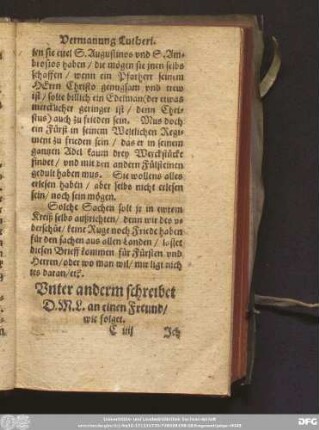 Vermanung Lutheri.
sen sie eitel S. Augustinos vnd S. Am-
brosios haben / die mögen sie jnen selbs
schaffen / wenn ein Pfarherr seinem
HErrn Christo gnugsam vnd trew
ist / solte billich ein Edelman (der etwas
mercklicher geringer ist / denn Chri-
stus) auch zu frieden sein. Mus doch
ein Fürst in seinem Weltlichen Regi-
ment zu frieden sein / das er in seinem
gantzen Adel kaum drey Werckstücke
findet / vnd mit den andern Fülsteinen
gedult haben mus. Sie wollens alles
erlesen haben / aber selbs nicht erlesen
sein / noch sein mögen.
Solche Sachen solt jr in ewrem
Kreiß selbs auffrichten / denn wir des v-
berschüt / keine Ruge noch Friede haben
für den sachen aus allen Landen / lasset
diesen Brieff kommen für Fürsten vnd
Herren / oder wo man wil / mir ligt nich
tes daran / etc.
Vnter anderm schreibet
D. M. L. an einen Freund /
wie folget.
C iiij Ich
DFG